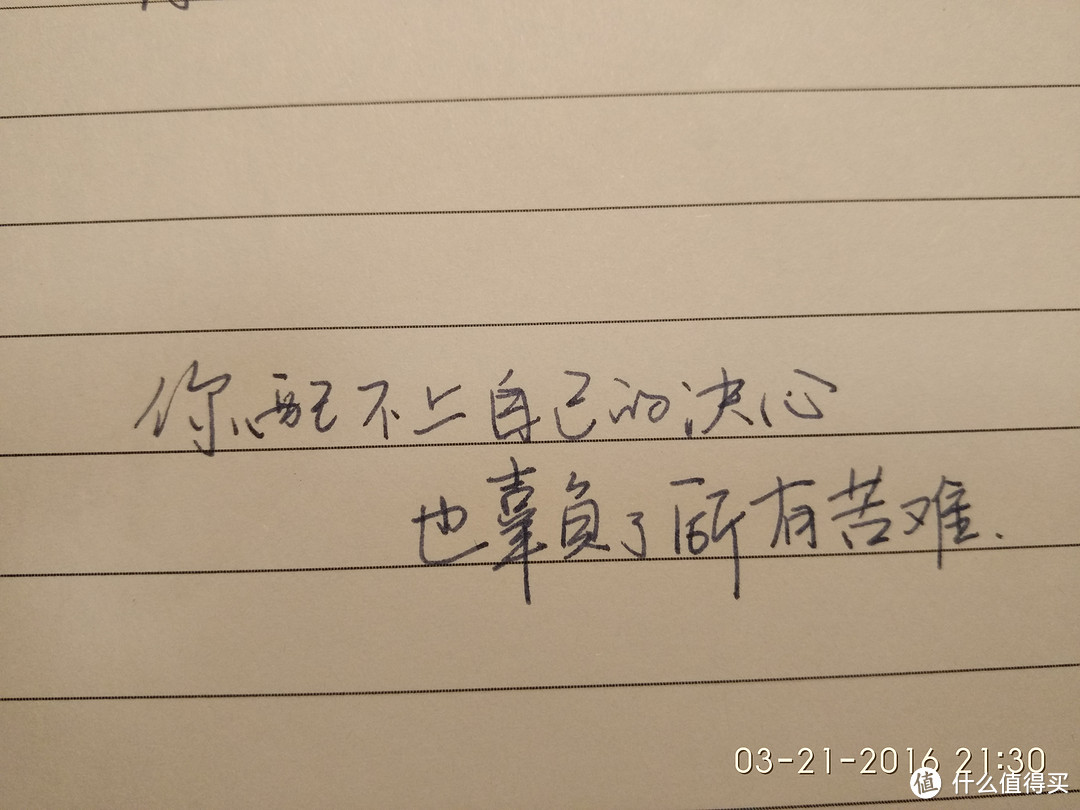 你配不上自己的决心
也辜负了所有苦难.
03-21-2016 21:30
值 什么值得买